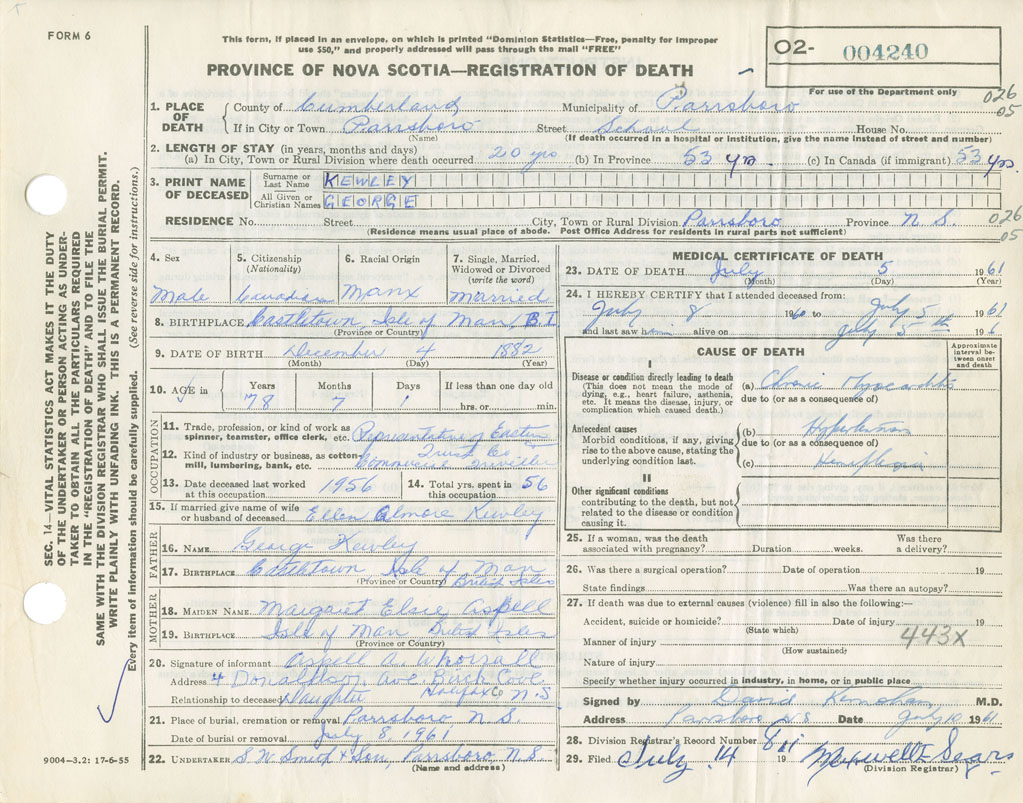 FORM 6
This form, if placed in an envelope, on which is printed "Dominion Statistics—Free, penalty for improper
use $50," and properly addressed will pass through the mail "FREE"
PROVINCE OF NOVA SCOTIA—REGISTRATION OF DEATH
02- 004240
For use of the Department only
026
05
SEC. 14—VITAL STATISTICS ACT MAKES IT THE DUTY
OF THE UNDERTAKER OR PERSON ACTING AS UNDER-
TAKER TO OBTAIN ALL THE PARTICULARS REQUIRED
IN THE "REGISTRATION OF DEATH" AND TO FILE THE
SAME WITH THE DIVISION REGISTRAR WHO SHALL ISSUE THE BURIAL PERMIT.
WRITE PLAINLY WITH UNFADING INK. THIS IS A PERMANENT RECORD.
Every item of information should be carefully supplied. (See reverse side for instructions.)
1. PLACE OF DEATH County of Cumberland, Municipality of Parrsboro
If in City or Town Parrsboro Street School House No.
(Name) (If death occurred in a hospital or institution, give the name instead of street and number)
2. LENGTH OF STAY (in years, months and days)
(a) In City, Town or Rural Division where death occurred 20 yrs (b) In Province 53 yrs. (c) In Canada (if immigrant) 53 yrs.
3. PRINT NAME OF DECEASED Surname or Last Name KEWLEY
All Given or Christian Names GEORGE
RESIDENCE No. Street City, Town or Rural Division Parrsboro Province N.S. 026
05
(Residence means usual place of abode. Post Office Address for residents in rural parts not sufficient)
4. Sex 5. Citizenship (Nationality) 6. Racial Origin 7. Single, Married, Widowed or Divorced (write the word)
Male Canadian Manx Married
8. BIRTHPLACE Castletown, Isle of Man, B.I
(Province or Country)
9. DATE OF BIRTH December 4 1882
(Month) (Day) (Year)
10. AGE in Years Months Days If less than one day old
78 7 1 hrs. or min.
OCCUPATION
11. Trade, profession, or kind of work as spinner, teamster, office clerk, etc. Representative of Eastern
12. Kind of industry or business, as cotton-mill, lumbering, bank, etc. Trust Co
13. Date deceased last worked at this occupation 1956 14. Total yrs. spent in this occupation 56
15. If married give name of wife or husband of deceased Ellen Elmore Kewley
FATHER
16. NAME George Kewley
17. BIRTHPLACE Castletown Isle of Man
(Province or Country) British Isles
MOTHER
18. MAIDEN NAME Margriet Elsie Aspell
19. BIRTHPLACE Isle of Man British Isles
(Province or Country)
20. Signature of informant Aspell A. Whorrall
Address 4 Donaldson Ave. Birch Cove
Relationship to deceased Daughter Halifax Co N.S
21. Place of burial, cremation or removal Parrsboro N.S.
Date of burial or removal July 8, 1961
22. UNDERTAKER S. W. Smith & Son, Parrsboro, N.S.
(Name and address)
9004—3.2: 17-6-55
MEDICAL CERTIFICATE OF DEATH
23. DATE OF DEATH July 5 1961
(Month) (Day) (Year)
24. I HEREBY CERTIFY that I attended deceased from:
July 8 1960 to July 5 1961
and last saw him alive on July 5th 196
CAUSE OF DEATH
Approximate interval between onset and death
I
Disease or condition directly leading to death
(This does not mean the mode of dying, e.g., heart failure, asthenia, etc. It means the disease, injury, or complication which caused death.)
(a) Chronic Myocarditis
due to (or as a consequence of)
Antecedent causes
Morbid conditions, if any, giving rise to the above cause, stating the underlying condition last.
(b) Hypertension
due to (or as a consequence of)
(c) Hemiplegia
II
Other significant conditions
contributing to the death, but not related to the disease or condition causing it.
25. If a woman, was the death associated with pregnancy? Duration weeks. Was there a delivery?
26. Was there a surgical operation? Date of operation 19
State findings Was there an autopsy?
27. If death was due to external causes (violence) fill in also the following:—
Accident, suicide or homicide? Date of injury 19
(State which)
Manner of injury 443X
(How sustained)
Nature of injury
Specify whether injury occurred in industry, in home, or in public place
Signed by David M.D.
Address Parrsboro N.S. Date July 10 1961
28. Division Registrar's Record Number
29. Filed July 14 19 Maxwell
(Division Registrar)